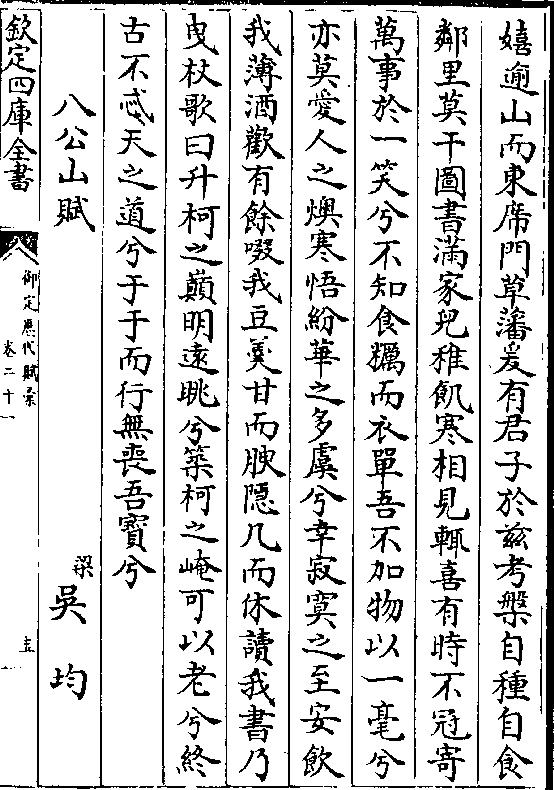 嬉逾山而東席門草藩爰有君子於兹考槃自種自食
鄰里莫干圖書滿家兒稚飢寒相見輒喜有時不冠寄
萬事於一笑兮不知食糲而衣單吾不加物以一毫兮
亦莫愛人之燠寒悟紛華之多虞兮幸寂寞之至安飲
我薄酒歡有餘啜我豆羹甘而腴隱几而休讀我書乃
曳杖歌曰升柯之巔明遠眺兮築柯之崦可以老兮終
古不忒天之道兮于于而行無喪吾寳兮
八公山賦
梁
吳均
欽定四庫全書
御定歷代賦彙
卷二十一
五